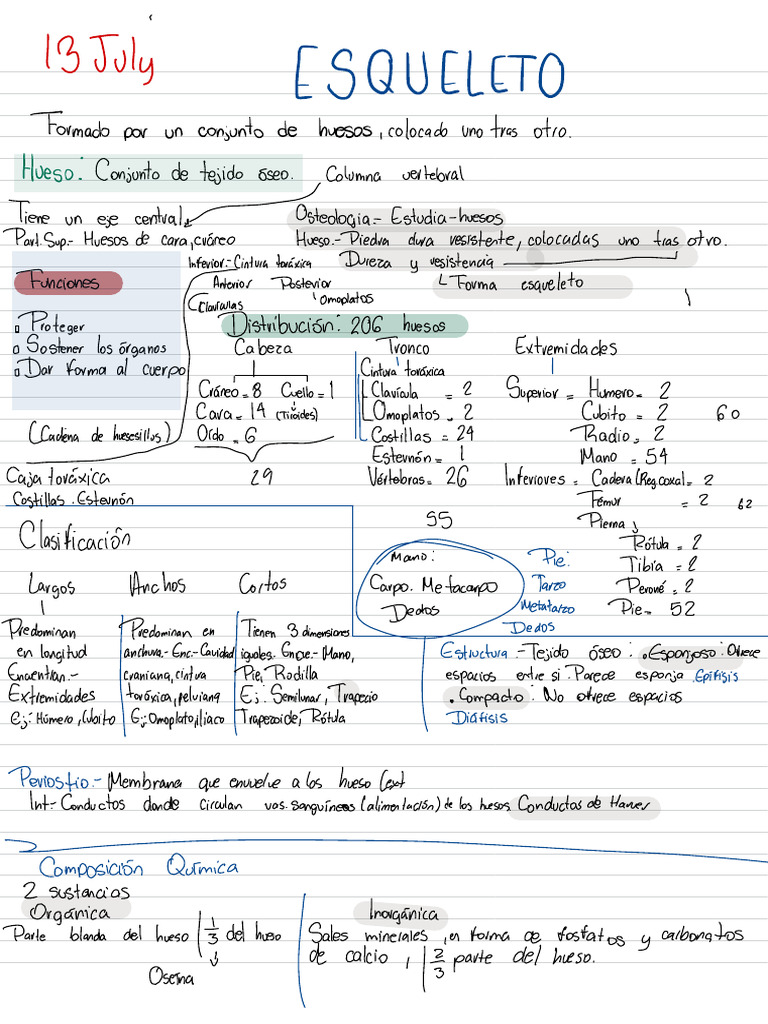 13 July
ESQUELETO
Formado por un conjunto de huesos, colocado uno tras otro.
Hueso: Conjunto de tejido óseo.
Columna vertebral
Tiene un eje central.
Part. Sup.- Huesos de cara, cráneo
Osteología.- Estudia-huesos
Hueso.- Piedra dura resistente, colocadas uno tras otro.
Dureza y resistencia
Forma esqueleto
Inferior.- Cintura toráxica
Anterior Posterior
Clavículas Omoplatos
Funciones
Proteger
Sostener los órganos
Dar forma al cuerpo
(Cadena de huesesillos)
Caja toráxica
Costillas. Esternón
Distribución: 206 huesos
Cabeza
Cráneo = 8 Cuello = 1
Cara = 14 (Tiroides)
Oído = 6
29
Tronco
Cintura toráxica
Clavícula = 2
Omoplatos = 2
Costillas = 24
Esternón = 1
Vértebras = 26
55
Extremidades
Superior = Humero = 2
Cubito = 2
60
Radio = 2
Mano = 54
Inferiores = Cadera (Reg. coxal = 2
Fémur = 2
62
Pierna
Rótula = 2
Tibia = 2
Peroné = 2
Pie = 52
Mano:
Carpo. Metacarpo
Dedos
Pie:
Tarzo
Metatarzo
Dedos
Clasificación
Largos
Predominan
en longitud
Encuentran.-
Extremidades
ej: Húmero, Cubito
Anchos
Predominan en
anchura.- Enc.- Cavidad
craniana, cintura
toráxica, pelviana
Ej: Omoplato, iliaco
Cortos
Tienen 3 dimensiones
iguales. Encue.- Mano,
Pie, Rodilla
Ej: Semilunar, Trapecio
Trapezoide, Rótula
Estructura.- Tejido óseo: . Esponjoso: Ofrece
espacios entre si. Parece esponja. Epífisis
. Compacto: No ofrece espacios
Diáfisis
Periostio.- Membrana que envuelve a los hueso (ext
Int.- Conductos donde circulan vas. sanguíneos (alimentación) de los huesos Conductos de Haver
Composición Química
2 sustancias
Orgánica
Parte blanda del hueso 1/3 del hueso
Oseina
Inorgánica
Sales minerales, en forma de fosfatos y carbonatos
de calcio, 2/3 parte del hueso.